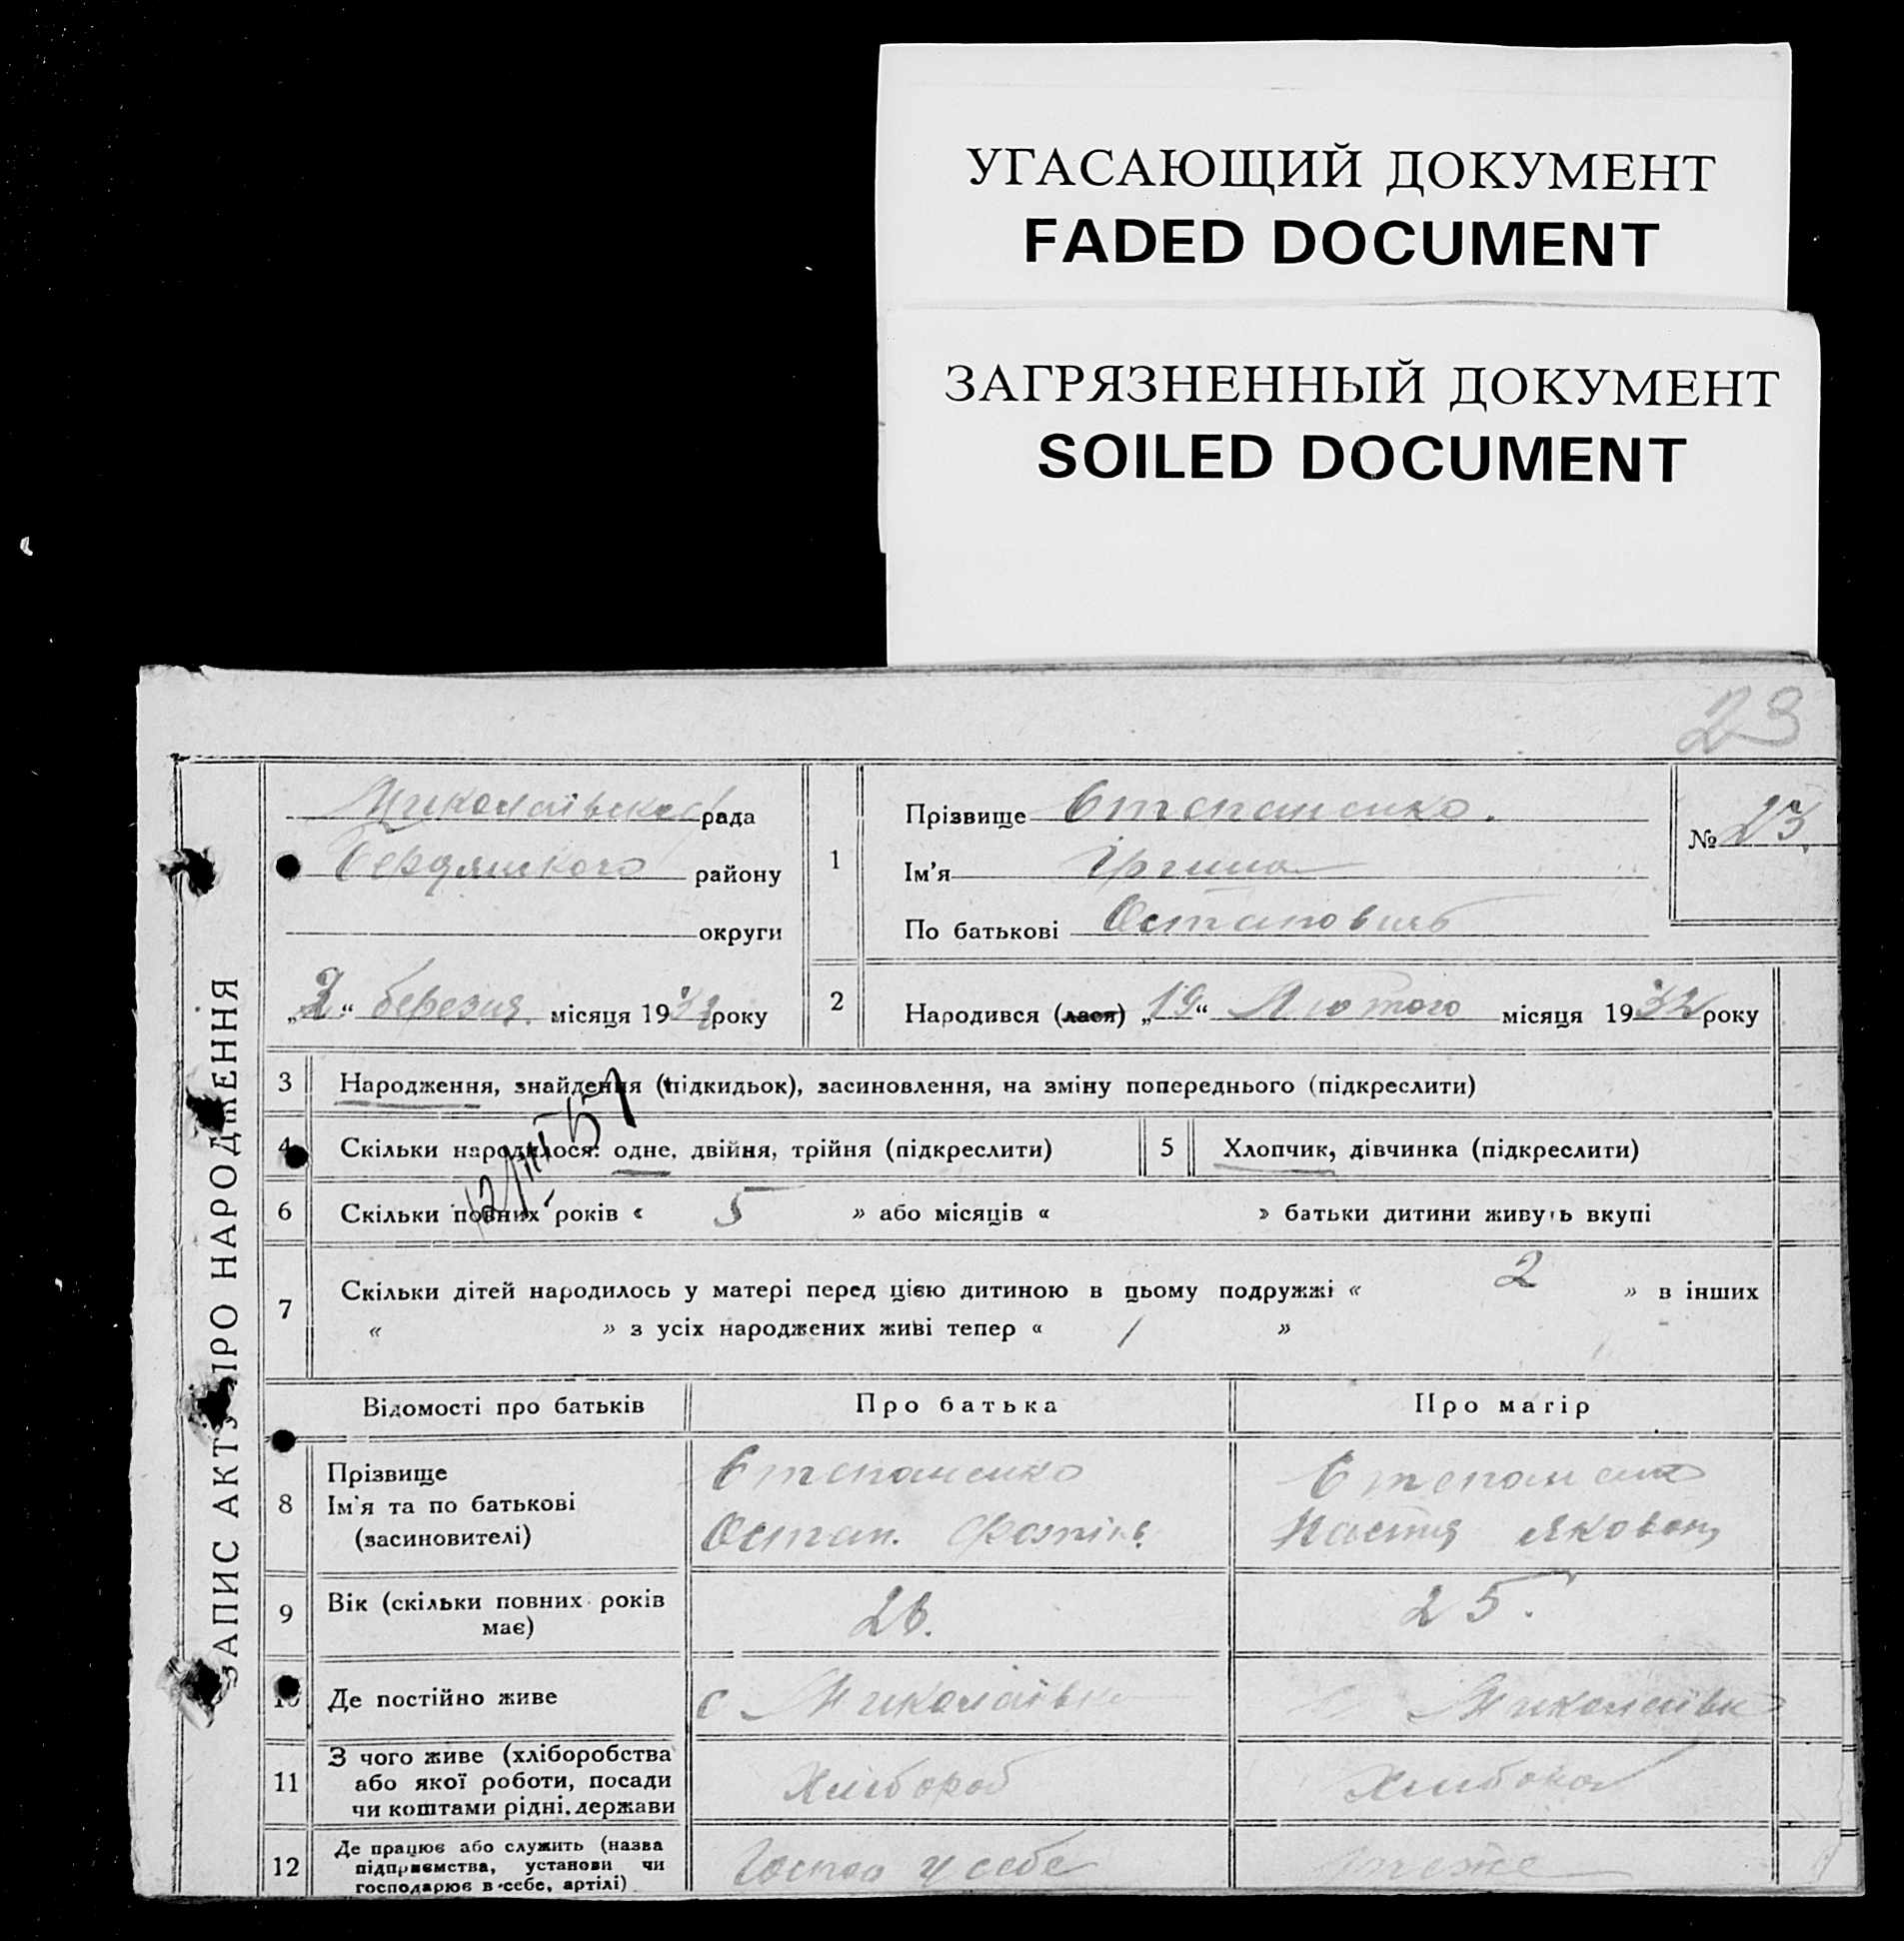 УГАСАЮЩИЙ ДОКУМЕНТ
FADED DOCUMENT
ЗАГРЯЗНЕННЫЙ ДОКУМЕНТ
SOILED DOCUMENT
23
ЗАПИС АКТУ ПРО НАРОДЖЕННЯ
Миколаївська рада
району
округи
„2“ березня місяця 1932 року
1
Прізвище Степаненко.
Ім'я
По батькові Остапович
№ 23.
2
Народився (лася) „19“ Лютого місяця 1932 року
3 Народження, знайдення (підкидьок), засиновлення, на зміну попереднього (підкреслити)
4 Скільки народилося: одне, двійня, трійня (підкреслити)
5 Хлопчик, дівчинка (підкреслити)
6 Скільки повних років « 5 » або місяців « » батьки дитини живуть вкупі
7 Скільки дітей народилось у матері перед цією дитиною в цьому подружжі « 2 » в інших
« » з усіх народжених живі тепер « 1 »
Відомості про батьків Про батька Про матір
8 Прізвище
Ім'я та по батькові
(засиновителі)
Степаненко
Остап.
Степаненко
Настя
9 Вік (скільки повних років
має)
26.
25.
10 Де постійно живе
с Миколаївка
Миколаївка
11 З чого живе (хліборобства
або якої роботи, посади
чи коштами рідні, держави
Хлибороб
12 Де працює або служить (назва
підприємства, установи чи
господарює в себе, артілі)
у себе
теже